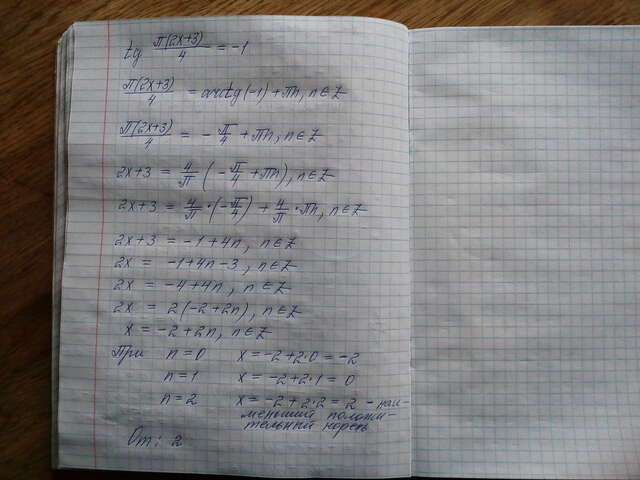 tg π(2x+3)/4 = -1
π(2x+3)/4 = arctg(-1) + πn, n∈Z
π(2x+3)/4 = -π/4 + πn, n∈Z
2x+3 = 4/π (-π/4 + πn), n∈Z
2x+3 = 4/π·(-π/4) + 4/π·πn, n∈Z
2x+3 = -1+4n, n∈Z
2x = -1+4n-3, n∈Z
2x = -4+4n, n∈Z
2x = 2(-2+2n), n∈Z
x = -2+2n, n∈Z
При n=0 x=-2+2·0=-2
n=1 x=-2+2·1=0
n=2 x=-2+2·2=2 - наи-
меньший положи-
тельный корень
От: 2